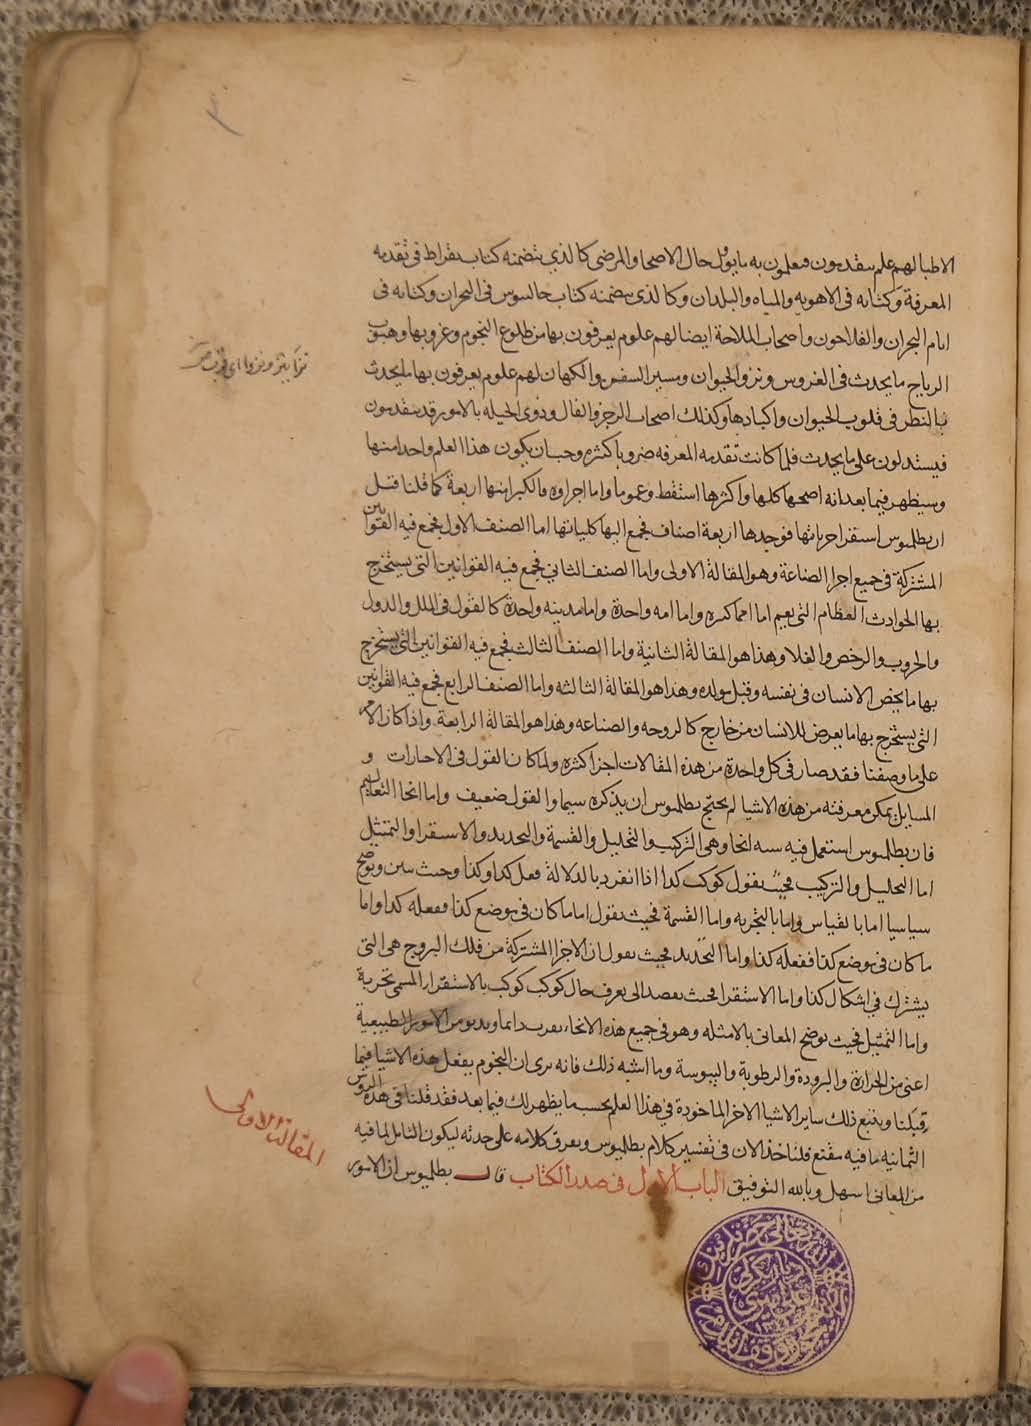 ٣
الاطبا لهم علم يتقدمون فيعلمون به ما يؤل حال الاصحا والمرضى كالذي يتضمنه كتاب بقراط في تقدمه
المعرفة وكتابه في الاهويه والمياه والبلدان وكالذي يتضمنه كتاب جالينوس في البحران وكتابه في
ايام البحران والفلاحون واصحاب الملاحة ايضا لهم علوم يعرفون بها من طلوع النجوم وغروبها وهبوب
الرياح ما يحدث في الغروس ونزو الحيوان ومسير السفن والكهان لهم علوم يعرفون بها ما يحدث
بالنظر في قلوب الحيوان واكبادها وكذلك اصحاب الزجر والفال وذوى الحيله بالامور قد يتقدمون
فيستدلون على ما يحدث فلما كانت تقدمه المعرفه ضروبا كثيره وجب ان يكون هذا العلم واحدا منها
وسيظهر فيما بعد انه اصحها كلها واكثرها استقط وعموما واما اجزاوه فالكبرا منها اربعة كما قلنا قبل
ان بطلميوس استقرا جزياتها فوجدها اربعة اصناف فجمع اليها كلياتها اما الصنف الاول فجمع فيه القوانين
المشتركة في جميع اجزا الصناعة وهو المقالة الاولى واما الصنف الثاني فجمع فيه القوانين التي يستخرج
بها الحوادث العظام التي تعم اما امما كثيره واما امه واحدة واما مدينه واحدة كالقول في الملل والدول
والحروب والرخص والغلا وهذا هو المقالة الثانية واما الصنف الثالث فجمع فيه القوانين التي يستخرج
بها ما يخص الانسان في نفسه وقبل مولده وهذا هو المقالة الثالثه واما الصنف الرابع فجمع فيه القوانين
التي يستخرج بها ما يعرض للانسان من خارج كالزوجه والصناعه وهذا هو المقالة الرابعة واذا كان الامر
على ما وصفنا فقد صار في كل واحدة من هذه المقالات اجزا كثيره ولما كان القول في الاختيارات و
المسايل يمكن معرفته من هذه الاشيا لم يحتج بطلميوس ان يذكره سيما والقول ضعيف واما انحا التعاليم
فان بطلميوس استعمل فيه سته انحا وهي التركيب والتحليل والقسمة والتحديد والاستقرا والتمثيل
اما التحليل والتركيب فحيث يقول كوكب كذا اذا انفرد بالدلالة فعل كذا وكذا وحيث يبين ويوضح
سياسيا اما بالقياس واما بالتجربه واما القسمة فحيث يقول اما ما كان في موضع كذا ففعله كذا واما
ما كان في موضع كذا ففعله كذا واما التحديد فحيث يقول ان الاجزا المشتركة من فلك البروج هي التي
يشترك في اشكال كذا واما الاستقرا فحيث يقصد الى تعرف حال كوكب كوكب بالاستقرار المسمى تجربة
واما التمثيل فحيث يوضح المعاني بالامثله وهو في جميع هذه الانحاء يقرب دايما ويدنو من الامور الطبيعية
اعني من الحرارة والبرودة والرطوبة واليبوسة وما اشبه ذلك فانه يرى ان النجوم يفعل هذه الاشيا فيما
قبلنا ويتبع ذلك ساير الاشيا الاخر الماخوذة في هذا العلم بحسب ما يظهر لك فيما بعد فقد قلنا في هذه الروس
الثمانيه ما فيه مقنع فلناخذ الان في تفسير كلام بطلميوس ونعرف كلامه على حدته ليكون التامل لما فيه
من المعاني اسهل وبالله التوفيق الباب الاول في صدر الكتاب قال بطلميوس ان الامور
نزا ينزو نزوا اى
المقالة الاولى